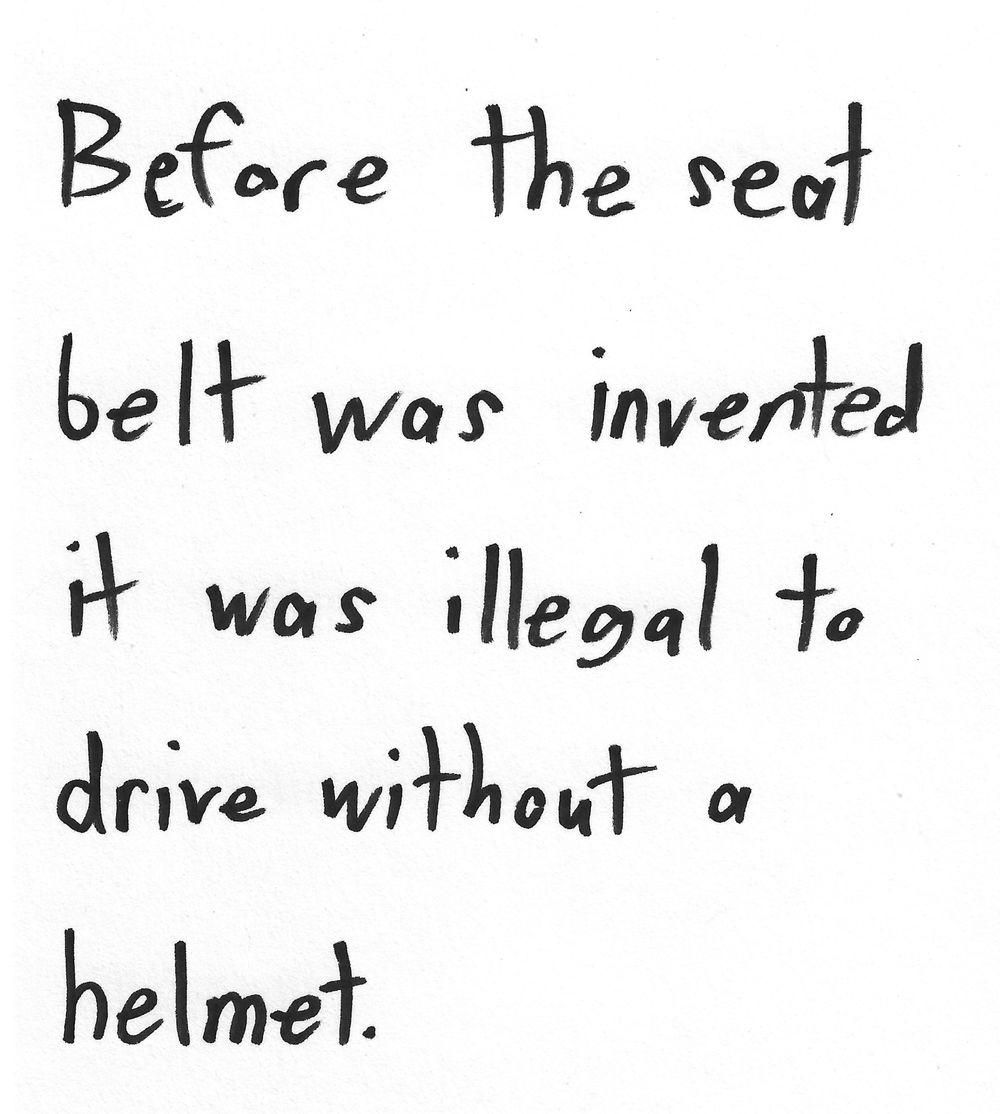 Before the seat
belt was invented
it was illegal to
drive without a
helmet.